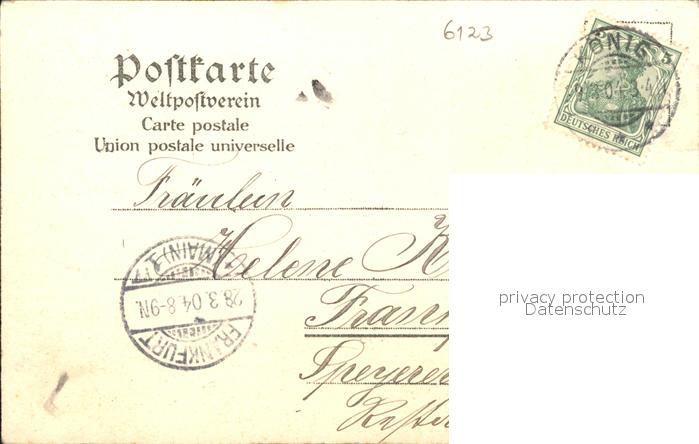 6123
Postkarte
Weltpostverein
Carte postale
Union postale universelle
KÖNIG
5
DEUTSCHES REICH
Fräulein
Helene K
Frank
Speyerer
FRANKFURT
(MAIN)
28.3.04.8-9N.
privacy protection
Datenschutz